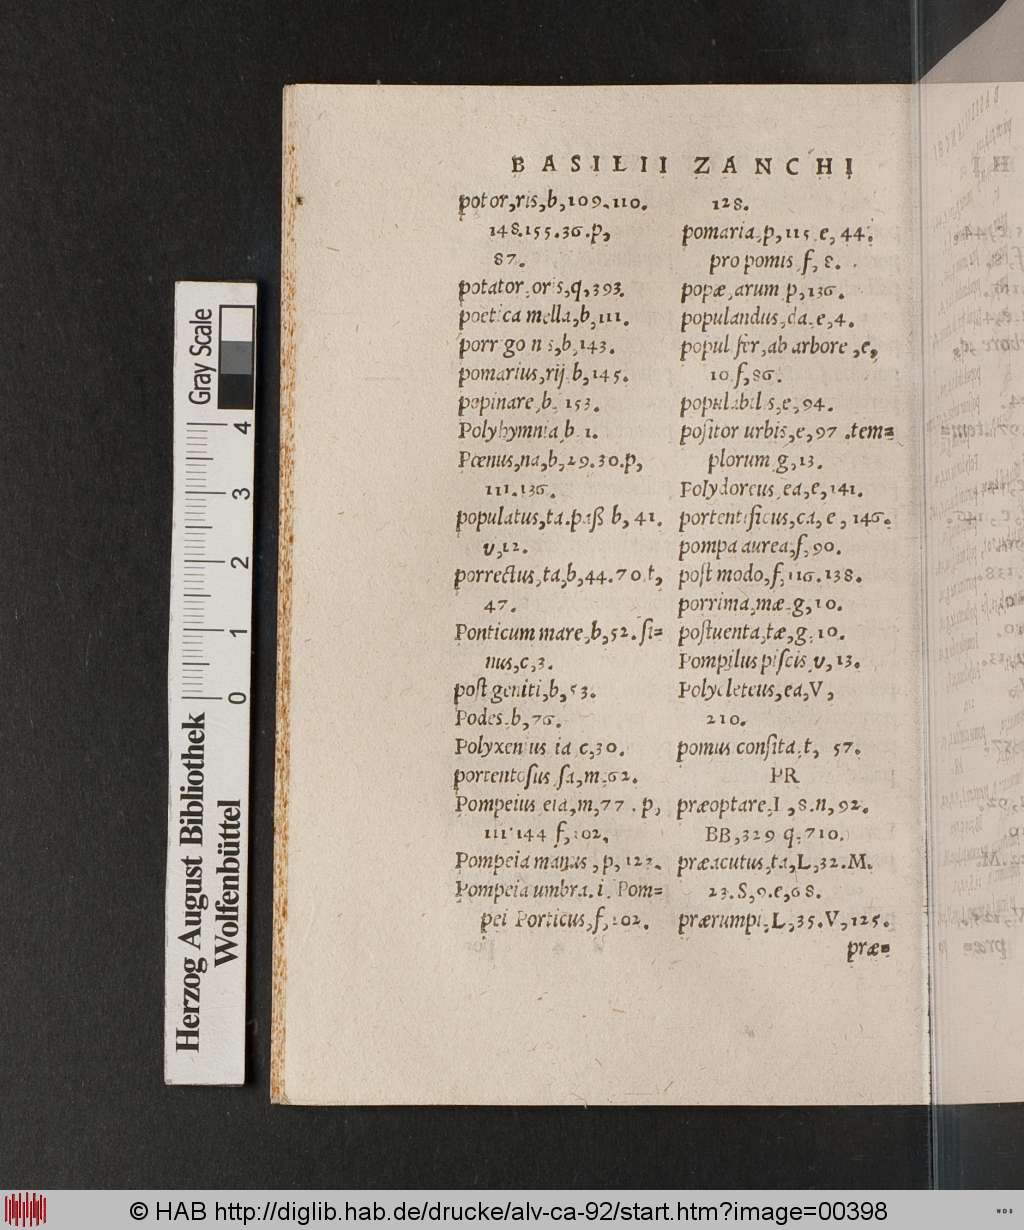 BASILII ZANCHI
potor,ris,b,109.110.
148.155.36.p,
87.
potator,oris,q,393.
poetica mella,b,111.
porrigo nis,b,143.
pomarius,rij.b,145.
popinare,b. 153.
Polyhymnia,b.1.
Pœnus,na,b,29.30.p,
111.136.
populatus,ta.paß b, 41.
v,12.
porrectus,ta,b,44.70.t,
47.
Ponticum mare,b,52.ſi=
nus,c,3.
poſt geniti,b,53.
Podes.b,76.
Polyxenius ia c,30.
portentoſus,ſa,m.62.
Pompeius eia,m,77.p,
111 144 f,102,
Pompeia manus,p,
Pompeia umbra.i.Pom=
pei Porticus,f,102.
128.
pomaria,p,115.e,44.
pro pomis f,8.
popæ,arum p,136.
populandus,da.e,4.
populifer,ab arbore,e,
10.f,86.
populabilis,e,94.
poſitor urbis,e,97.tem=
plorum g,13.
Polydoreus,ea,e,141.
portentificus,ca,e, 146.
pompa aurea,f,90.
poſt modo,f,116.138.
porrima,mæ.g,10.
poſtuenta,tæ,g.10.
Pompilus piſcis,v,13.
Polycleteus,ea,V,
210.
pomus conſita,t, 57.
PR
præoptare,I,8.n,92.
BB,329 q.710.
præacutus,ta,L,32.M.
23.S,9.e,68.
prærumpi,L,35.V,125.
præ=
Gray Scale
4
3
2
1
0
Herzog August Bibliothek
Wolfenbüttel
© HAB http://diglib.hab.de/drucke/alv-ca-92/start.htm?image=00398